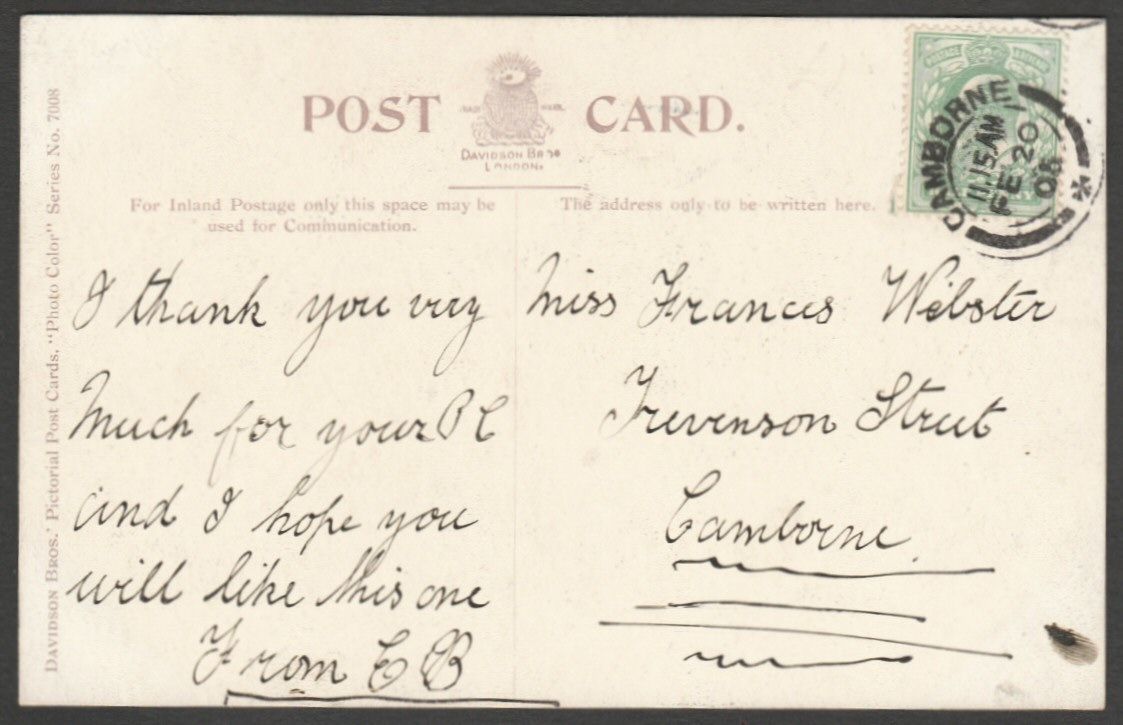 POST CARD.
TRADE MARK
DAVIDSON BROS
LONDON.
For Inland Postage only this space may be
used for Communication.
The address only to be written here.
DAVIDSON BROS.' Pictorial Post Cards. "Photo Color" Series No. 7008
POSTAGE
CAMBORNE
11.15 AM
FE 20
I thank you very
Much for your P C
and I hope you
will like this one
From E B
Miss Frances Webster
Trevenson Street
Camborne.